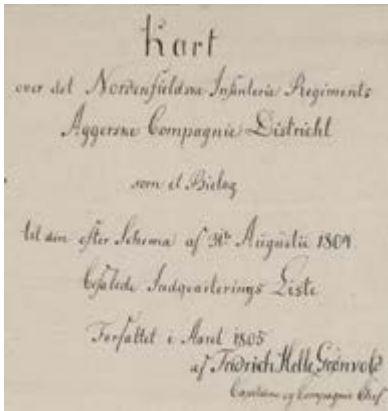 Kart
over det Nordenfieldske Infanterie Regiments
Aggerske Compagnie District
som et Bielag
til den efter Schema af 31te Augustii 1804
befalede Indqvarterings Liste
Forfattet i Aaret 1805
af Fridrich Helle Grønvold
Capitaine og Compagnie Chef